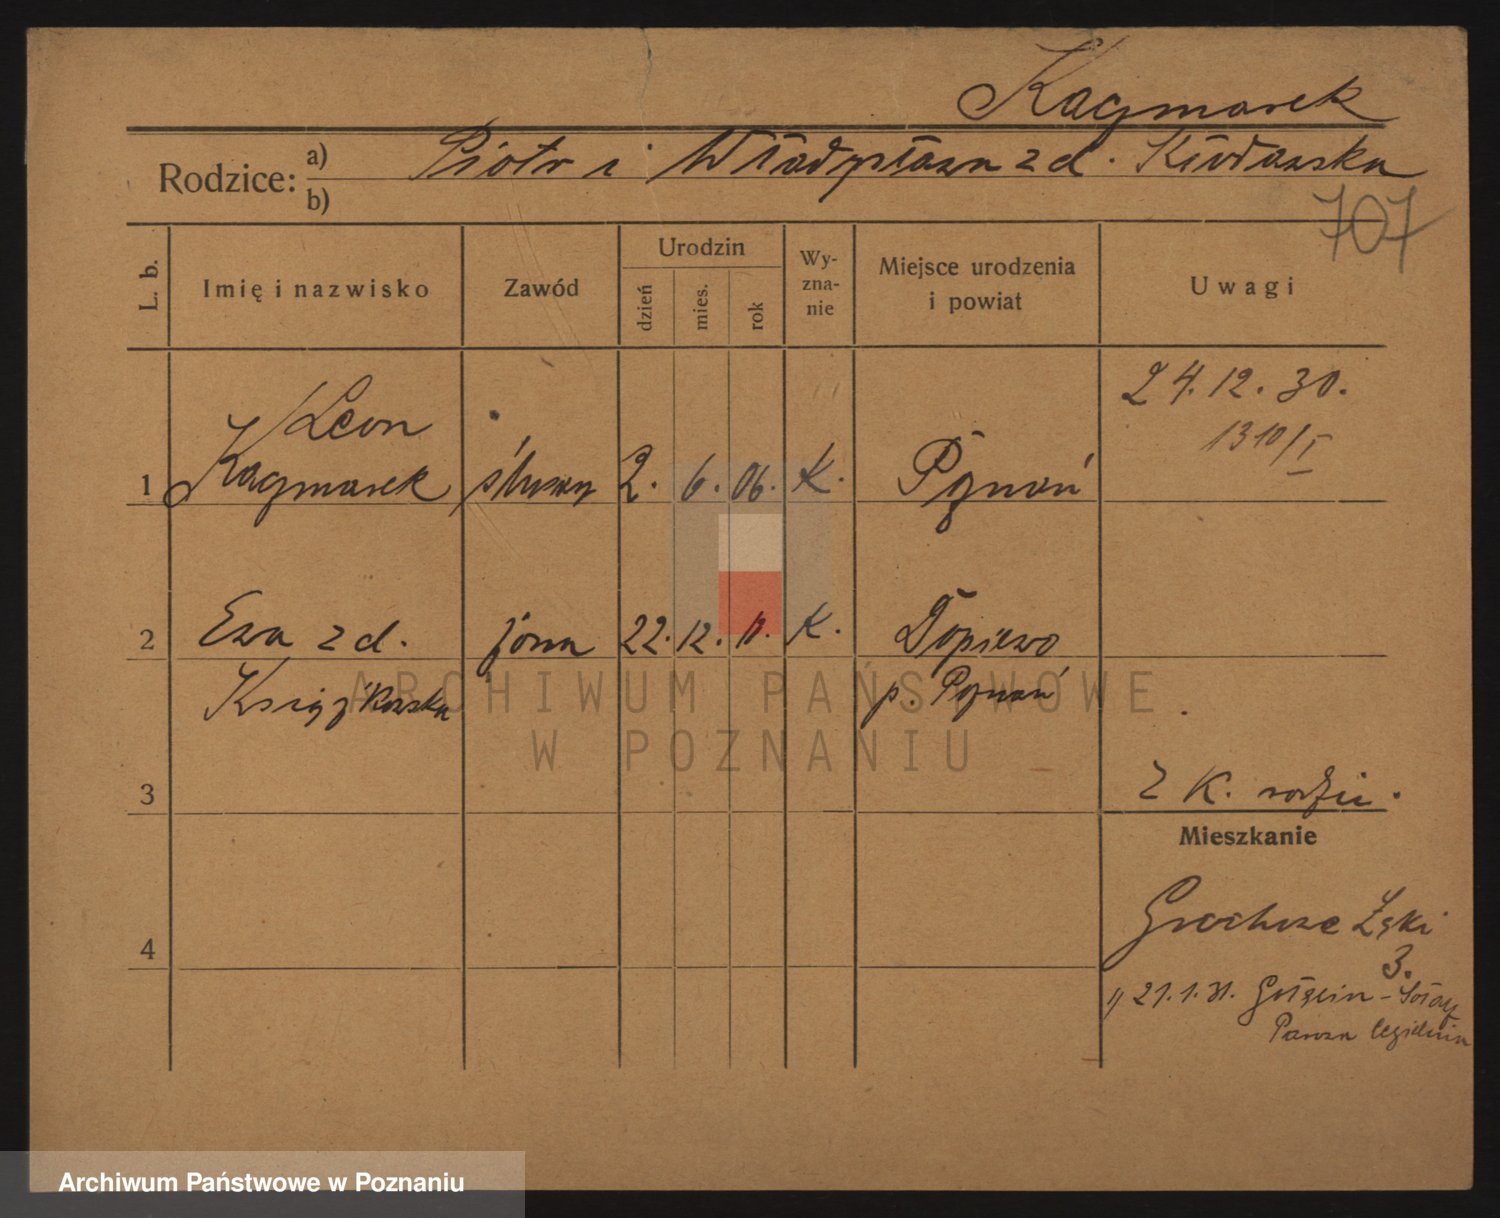 Kaczmarek
Rodzice: a) Piotr i Władysława z d.
b)
707
L. b.
Imię i nazwisko
Zawód
Urodzin
dzień
mies.
rok
Wy-
zna-
nie
Miejsce urodzenia
i powiat
Uwagi
24.12.30.
1310/I
Leon
1 Kaczmarek ślusarz 2. 6. 06. K. Poznań
2 Ewa z d. żona 22. 12. 11. K. Dopiewo
Książkowska p. Poznań
ARCHIWUM PAŃSTWOWE
W POZNANIU
3
z K. rodzin.
Mieszkanie
Grochowe Łąki
3.
4
1) 21.1.31. Golęcin - Sołacz
Parowa cegielnia
Archiwum Państwowe w Poznaniu